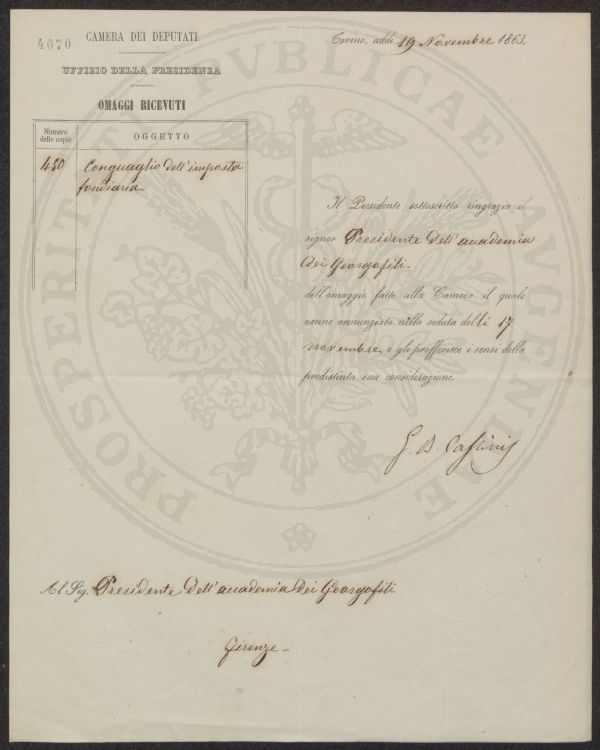 4070
CAMERA DEI DEPUTATI
UFFIZIO DELLA PRESIDENZA
OMAGGI RICEVUTI
Numero
delle copie
OGGETTO
450 Conguaglio dell'imposta
fondiaria
Torino, addì 19 Novembre 1863.
Il Presidente sottoscritto ringrazia il
signor Presidente dell'accademia
dei Georgofili
dell'omaggio fatto alla Camera il quale
venne annunziato nella seduta delli 17
novembre e gli profferisce i sensi della
predistinta sua considerazione.
G. B. Cassinis
Al Sig. Presidente dell'accademia dei Georgofili
Firenze
PROSPERITATI PVBLICAE AVGENDAE